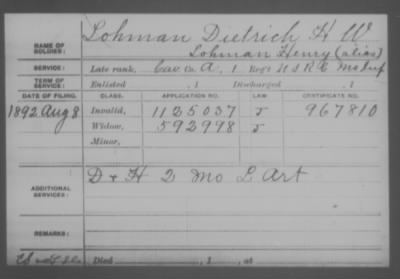 Lohman Dietrich H W
NAME OF SOLDIER:
Lohman Henry (alias)
SERVICE: Late rank, Co. A, 1 Reg't U S R C Mo Inf
TERM OF SERVICE: Enlisted , 1 Discharged , 1
DATE OF FILING. CLASS. APPLICATION NO. LAW. CERTIFICATE NO.
1892 Aug 8 Invalid, 1125037 J 967810
Widow, 592998 J
Minor,
D & H 2 Mo L Art
ADDITIONAL SERVICES:
REMARKS:
Died , 1 , at